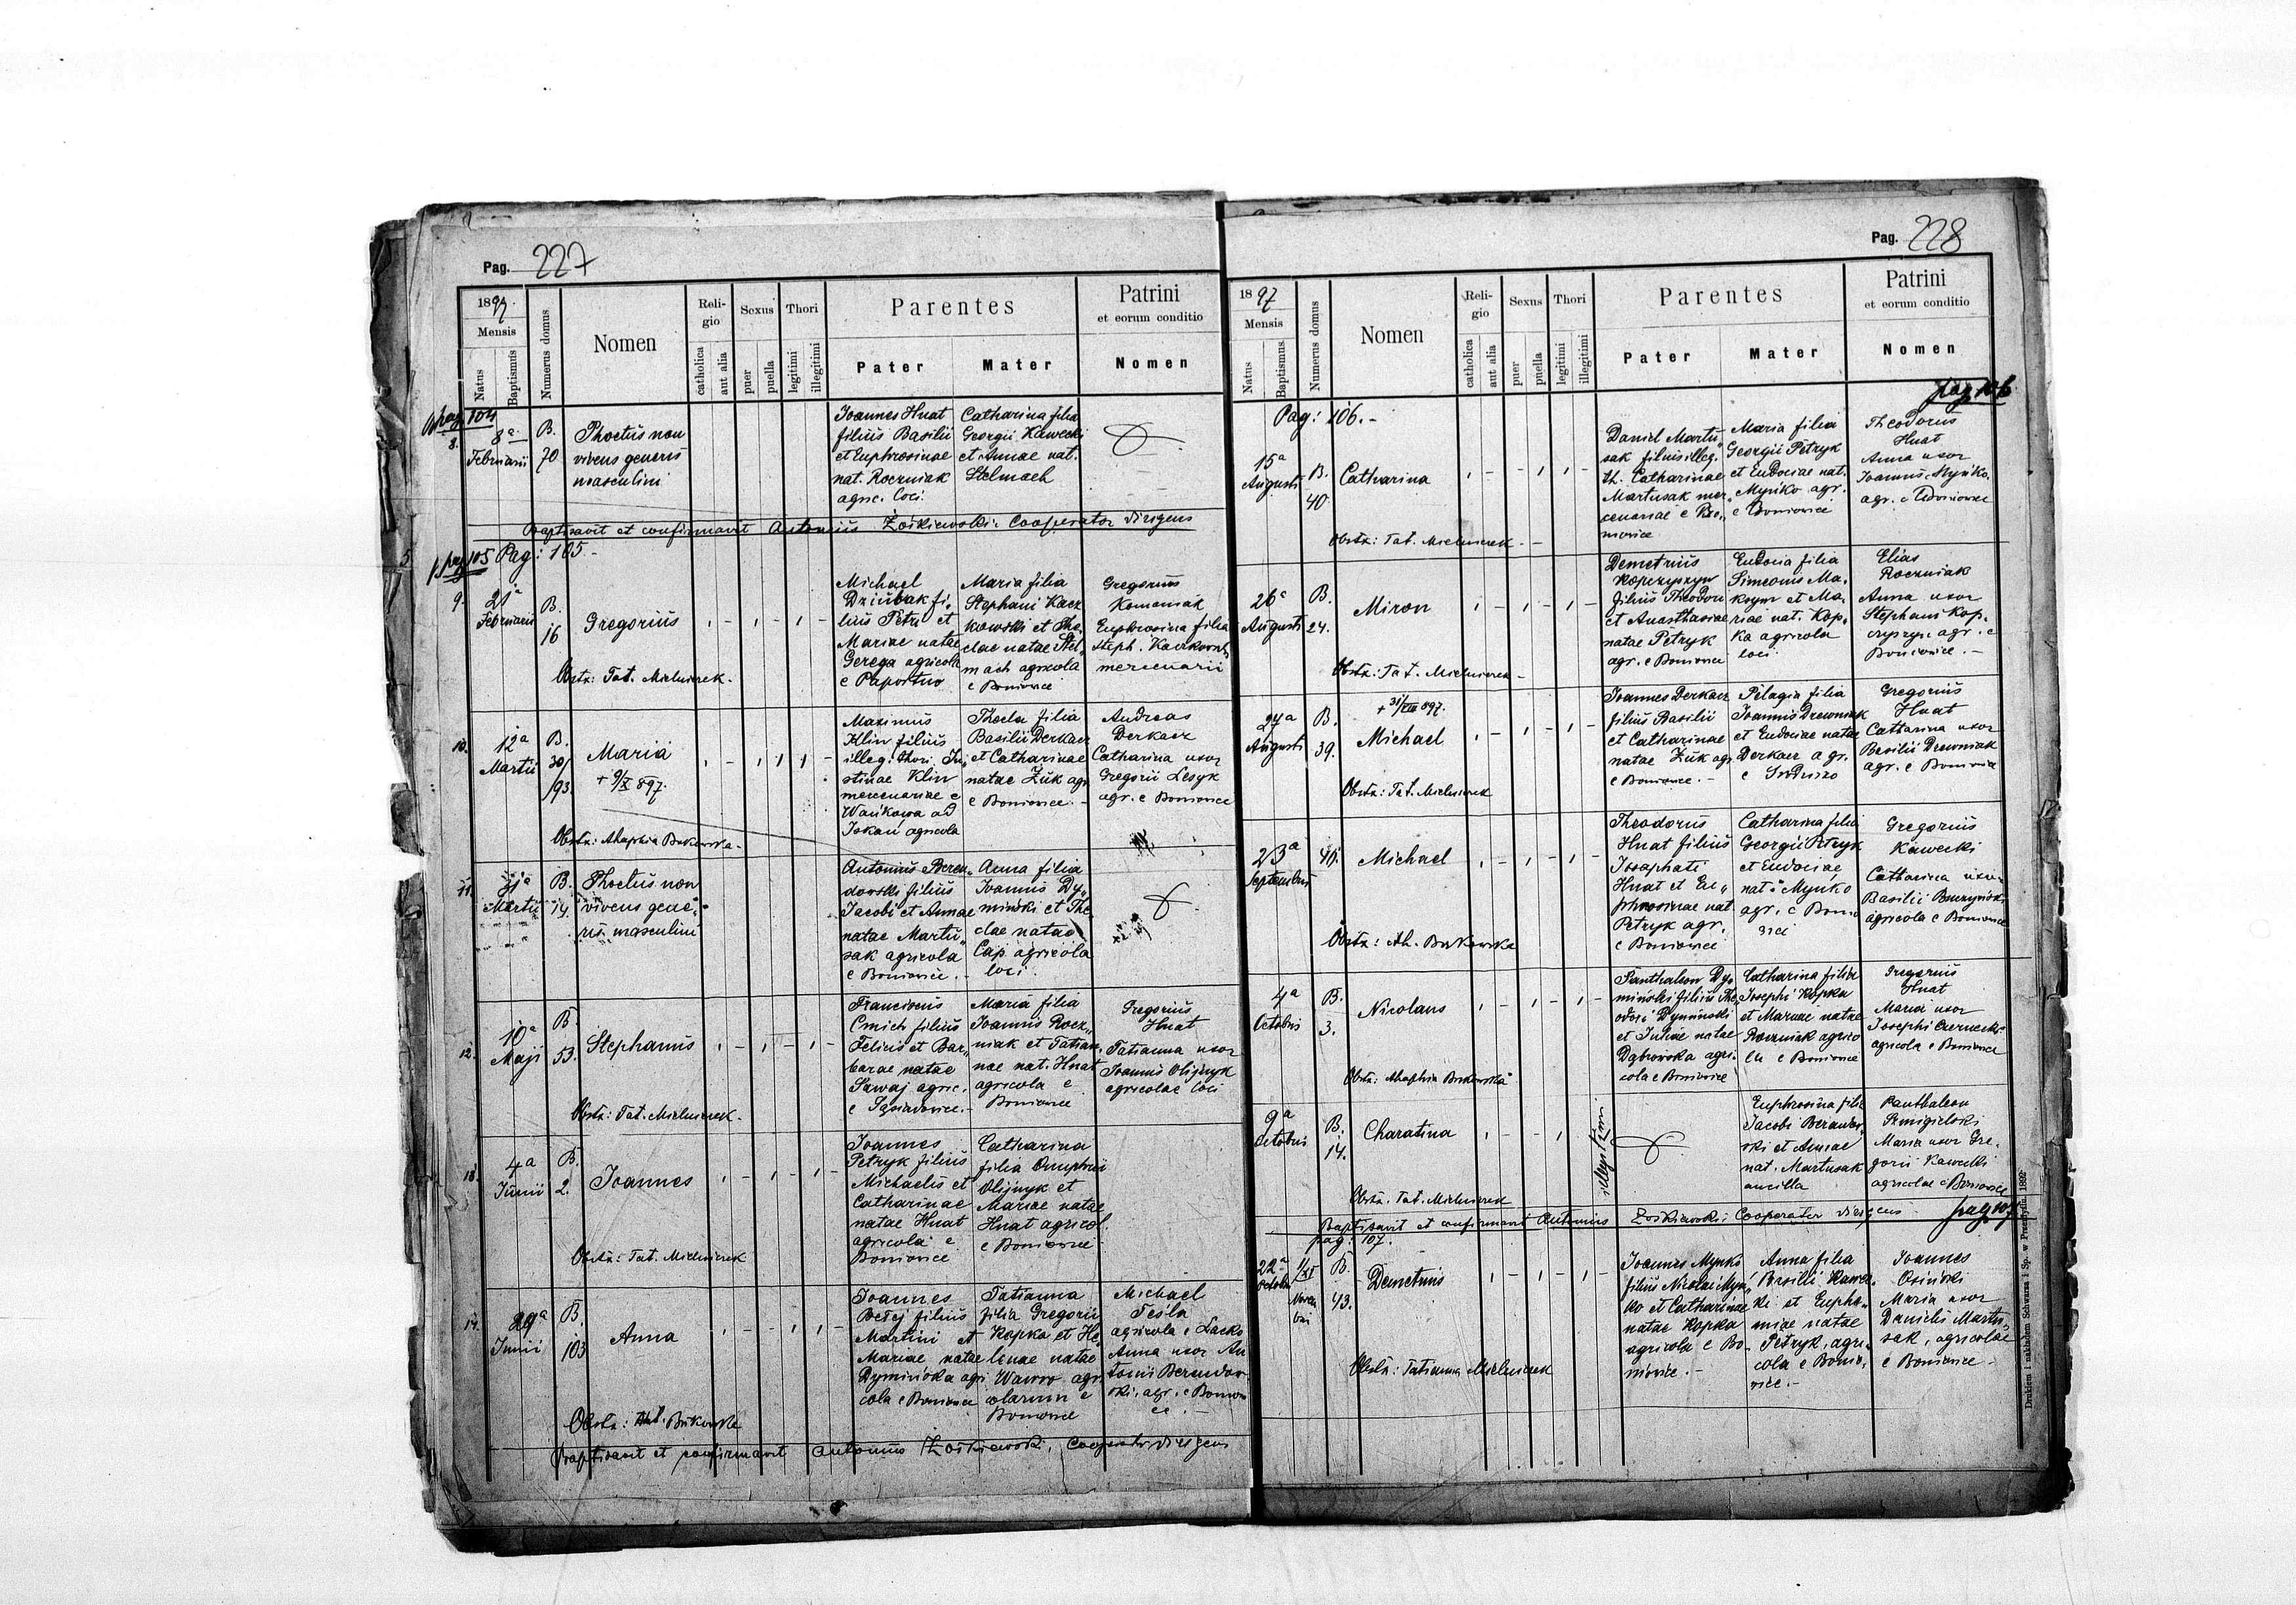 Pag. 227
1897.
Mensis
Natus
Baptismus
Numerus domus
Nomen
Religio
catholica
aut alia
Sexus
puer
puella
Thori
legitimi
illegitimi
Parentes
Pater
Mater
Patrini
et eorum conditio
Nomen
pag. 104
8.
8a
Februarii
B.
70
Phoetus non
vivens generis
masculini
Joannes Hnat
filius Basilii
et Euphrosinae
nat. Roczniak
agric. loci.
Catharina filia
Georgii Kawecki
et Annae nat.
Stelmach
Baptisavit et confirmavit Antonius Żołkiewski: Cooperator dirigens
pag 105 Pag: 105.-
9.
21a
Februarii
B.
16
Gregorius
Obstx: Tat. Mielniczek.
Michael
Dziubak fi-
lius Petri et
Mariae natae
Gerega agricola
e Paportno
Maria filia
Stephani Kacz
kowski et The-
clae natae Stel-
mach agricola
e Boniowice
Gregorius
Komaniak
Euphrosina filia
Steph. Kaczkowski
mercenarii
10.
12a
Martii
B.
30/
93.
Maria
+ 9/X 897.
Obstx: Ahaphia Bukowska.
Maximus
Klin filius
illeg. thori Ju-
stinae Klin
mercenariae e
Wańkowa ad
agricola
Thecla filia
Basilii Derkacz
et Catharinae
natae Żuk agr.
e Boniowice.
Andreas
Derkacz
Catharina uxor
Gregorii Lesyk
agr. e Boniowice
11.
31a
Martii
B.
14.
Phoetus non
vivens gene-
ris masculini
Antonius Beren-
dowski filius
Jacobi et Annae
natae Martu-
sak agricola
e Boniowice.
Anna filia
Joannis Dy-
miński et The-
clae natae
Cap agricola
loci.
12.
10a
Maji
B.
53.
Stephanus
Obstx: Tat. Mielniczek.
Franciscus
Cmich filius
Felicis et Bar-
barae natae
Sawaj agric.
e Sąsiadowice.-
Maria filia
Joannis Rocz-
niak et Tatian-
nae nat. Hnat
agricola e
Boniowice
Gregorius
Hnat
Tatianna uxor
Joannis Olijnyk
agricolae loci
13.
4a
Junii
B.
2.
Joannes
Obstx: Tat. Mielniczek
Joannes
Petryk filius
Michaelis et
Catharinae
natae Hnat
agricola e
Boniowice
Catharina
filia Onuphrii
Olijnyk et
Mariae natae
Hnat agricol.
e Boniowice
14.
29a
Junii
B.
103
Anna
Obstx: Bukowska
Joannes
Betej filius
Martini et
Mariae natae
Dymińska agri
cola e Boniowice
Tatianna
filia Gregorii
Kopka et He-
lenae natae
Wawro agri
colarum e
Boniowice
Michael
Tesla
agricola e Lacko
Anna uxor An
tonii Berendow-
ski, agr. e Boniowi
ce.-
Baptisavit et confirmavit Antonius Żołkiewski, Cooperator dirigens
Pag. 228
1897
Mensis
Natus
Baptismus
Numerus domus
Nomen
Religio
catholica
aut alia
Sexus
puer
puella
Thori
legitimi
illegitimi
Parentes
Pater
Mater
Patrini
et eorum conditio
Nomen
pag 106
Pag: 106.-
15a
Augusti
B.
40
Catharina
Obstx: Tat. Mielniczek.-
Daniel Martu-
sak filius illeg.
th. Catharinae
Martusak mer-
cenariae e Bo-
niowice
Maria filia
Georgii Petryk
et Eudociae nat.
Mynko agr.
e Boniowice
Theodorus
Hnat
Anna uxor
Joannis Mynko
agr. e Boniowice
26a
Augusti
B.
24.
Miron
Obstx: Tat. Mielniczek-
Demetrius
Kopczyszyn
filius Theodori
et Anasthasiae
natae Petryk
agr. e Boniowice
Eudocia filia
Simeonis Ma-
koym et Ma-
riae nat. Kop-
ka agricola
loci
Elias
Roczniak
Anna uxor
Stephani Kop-
czyszyn agr. e
Boniowice.-
27a
Augusti
B.
39.
+ 31/VIII 897.
Michael
Obstx: Tat. Mielniczek
Joannes Derkacz
filius Basilii
et Catharinae
natae Żuk agr.
e Boniowice.-
Pelagia filia
Joannis Drewniak
et Eudociae natae
Derkacz agr.
e
Gregorius
Hnat
Catharina uxor
Basilii Drewniak
agr. e Boniowice
23a
Septembris
40.
Michael
Obstx: Ah. Bukowska
Theodorus
Hnat filius
Josaphati
Hnat et Eu-
phrosinae nat.
Petryk agr.
e Boniowice
Catharina filia
Georgii Petryk
et Eudociae
nat. Mynko
agr. e Bonio
wice
Gregorius
Kawecki
Catharina uxor
Basilii Buczyński
agricola e Boniowice
4a
Octobris
B.
3.
Nicolaus
Obstx: Ahaphia Bukowska
Panthaleon Dy-
miński filius The-
odori Dymiński
et Juliae natae
Dąbrowska agri-
cola e Boniowice
Catharina filia
Josephi Kopka
et Mariae natae
Roczniak agrico
la e Boniowice
Gregorius
Hnat
Maria uxor
Josephi Czernecki
agricola e Boniowice
9a
Octobris
B.
14.
Charatina
illegitimi
Obstx. Tat. Mielniczek
Euphrosina filia
Jacobi Berendow-
ski et Annae
nat. Martusak
ancilla
Panthaleon
Szmigielski
Maria uxor Gre-
gorii Kawecki
agricolae e Boniowice
Baptisavit et confirmavit Antonius Żołkiewski; Cooperator dirigens
pag 107
pag: 107.
22a
Octobris
1/XI
Novem
bri
B.
43.
Demetrius
Obstx: Tatianna Mielniczek
Joannes Mynko
filius Nicolai Myn-
ko et Catharinae
natae Kopka
agricola e Bo-
niowice.-
Anna filia
Basilii Kawec-
ki et Euphe-
miae natae
Petryk, agri-
cola e Bonio-
wice.-
Joannes
Osiński
Maria uxor
Danielis Martu-
sak, agricolae
e Boniowice.-
Drukiem i nakładem Schwarza i Sp. w Przemyślu. 1892